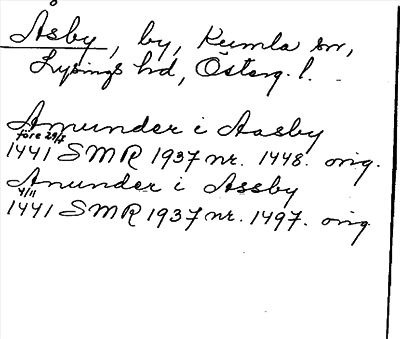 Åsby, by, Kumla sn,
Lysings hd, Österg. l.
Amunder i Aasby
före 29/7
1441 SMR 1937 nr. 1448. orig.
Anunder i Assby
4/11
1441 SMR 1937 nr. 1497. orig.